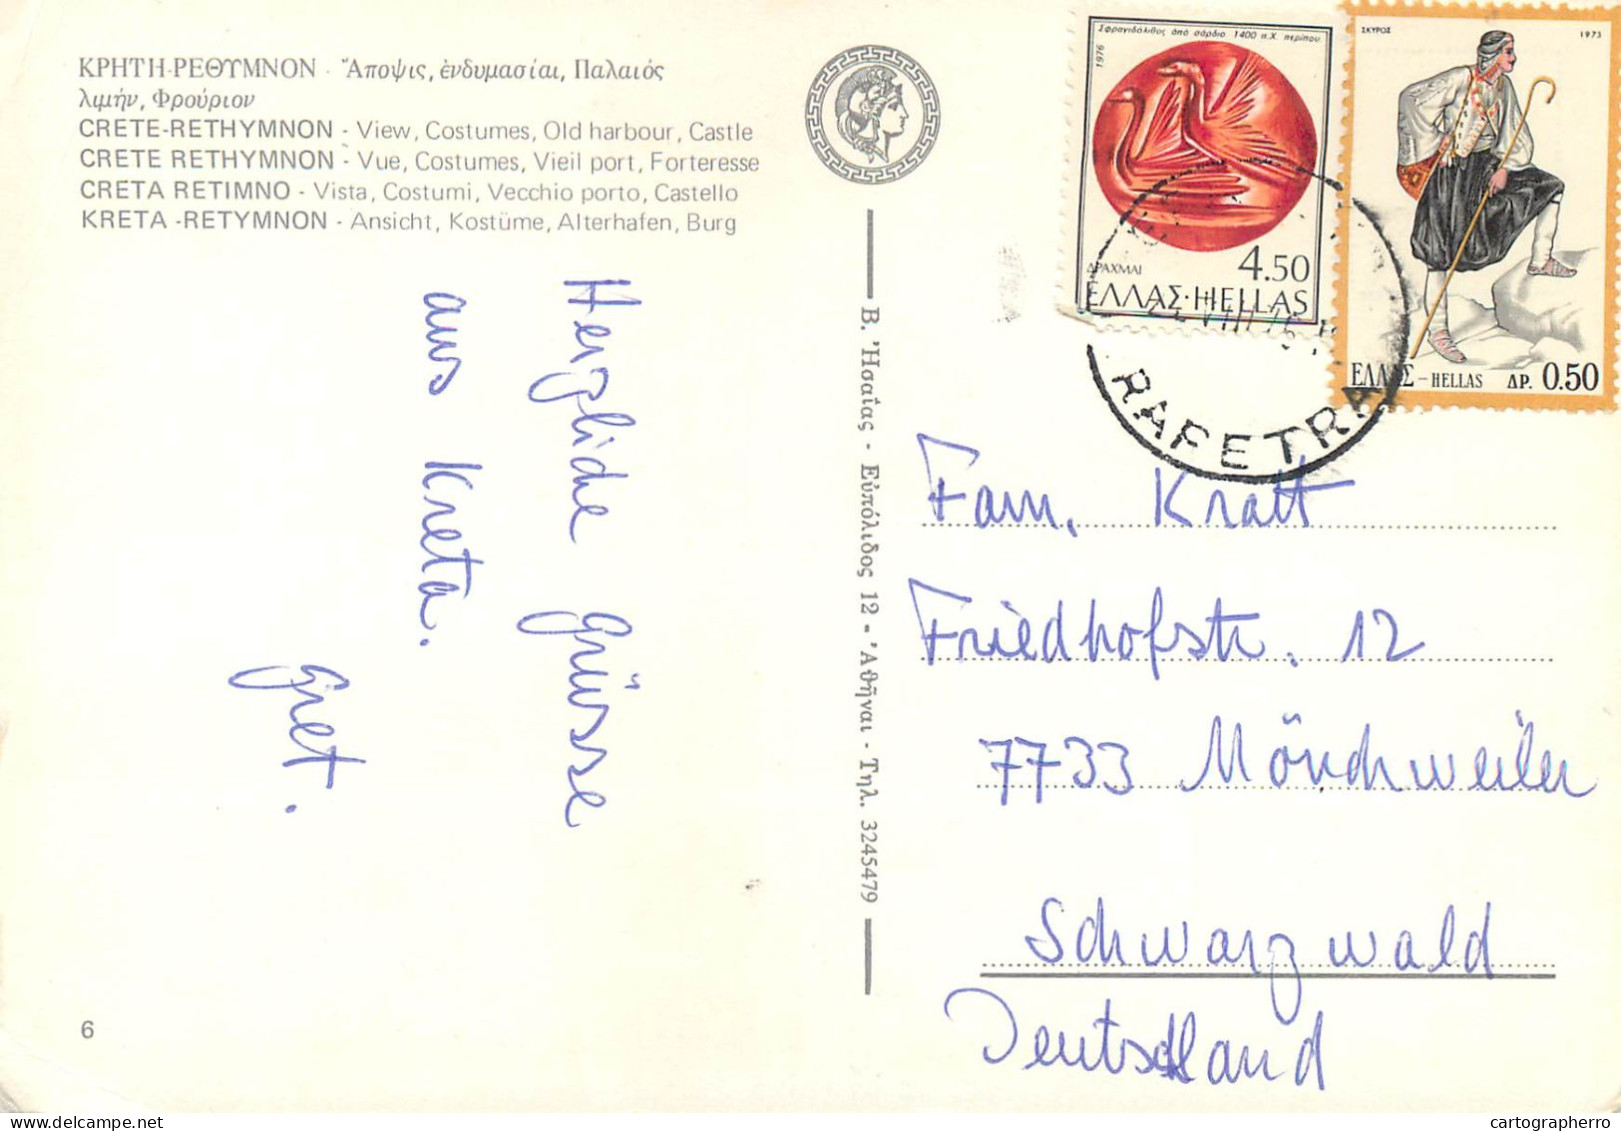 ΚΡΗΤΗ-ΡΕΘΥΜΝΟΝ - Ἄποψις, ἐνδυμασίαι, Παλαιός
λιμήν, Φρούριον
CRETE-RETHYMNON - View, Costumes, Old harbour, Castle
CRETE RETHYMNON - Vue, Costumes, Vieil port, Forteresse
CRETA RETIMNO - Vista, Costumi, Vecchio porto, Castello
KRETA -RETYMNON - Ansicht, Kostüme, Alterhafen, Burg
Herzliche Grüsse
aus Kreta.
Gret.
6
Β. Ἡσαΐας - Εὐπόλιδος 12 - Ἀθῆναι - Τηλ. 3245479
Σφραγιδόλιθος ἀπό σάρδιο 1400 π.Χ. περίπου
1976
4.50
ΔΡΑΧΜΑΙ
ΕΛΛΑΣ·HELLAS
ΣΚΥΡΟΣ 1973
ΕΛΛΑΣ-HELLAS ΔΡ. 0.50
VIII 76
RAFETRA
Fam. Kratt
Friedhofstr. 12
7733 Mönchweiler
Schwarzwald
Deutschland
cartographerro